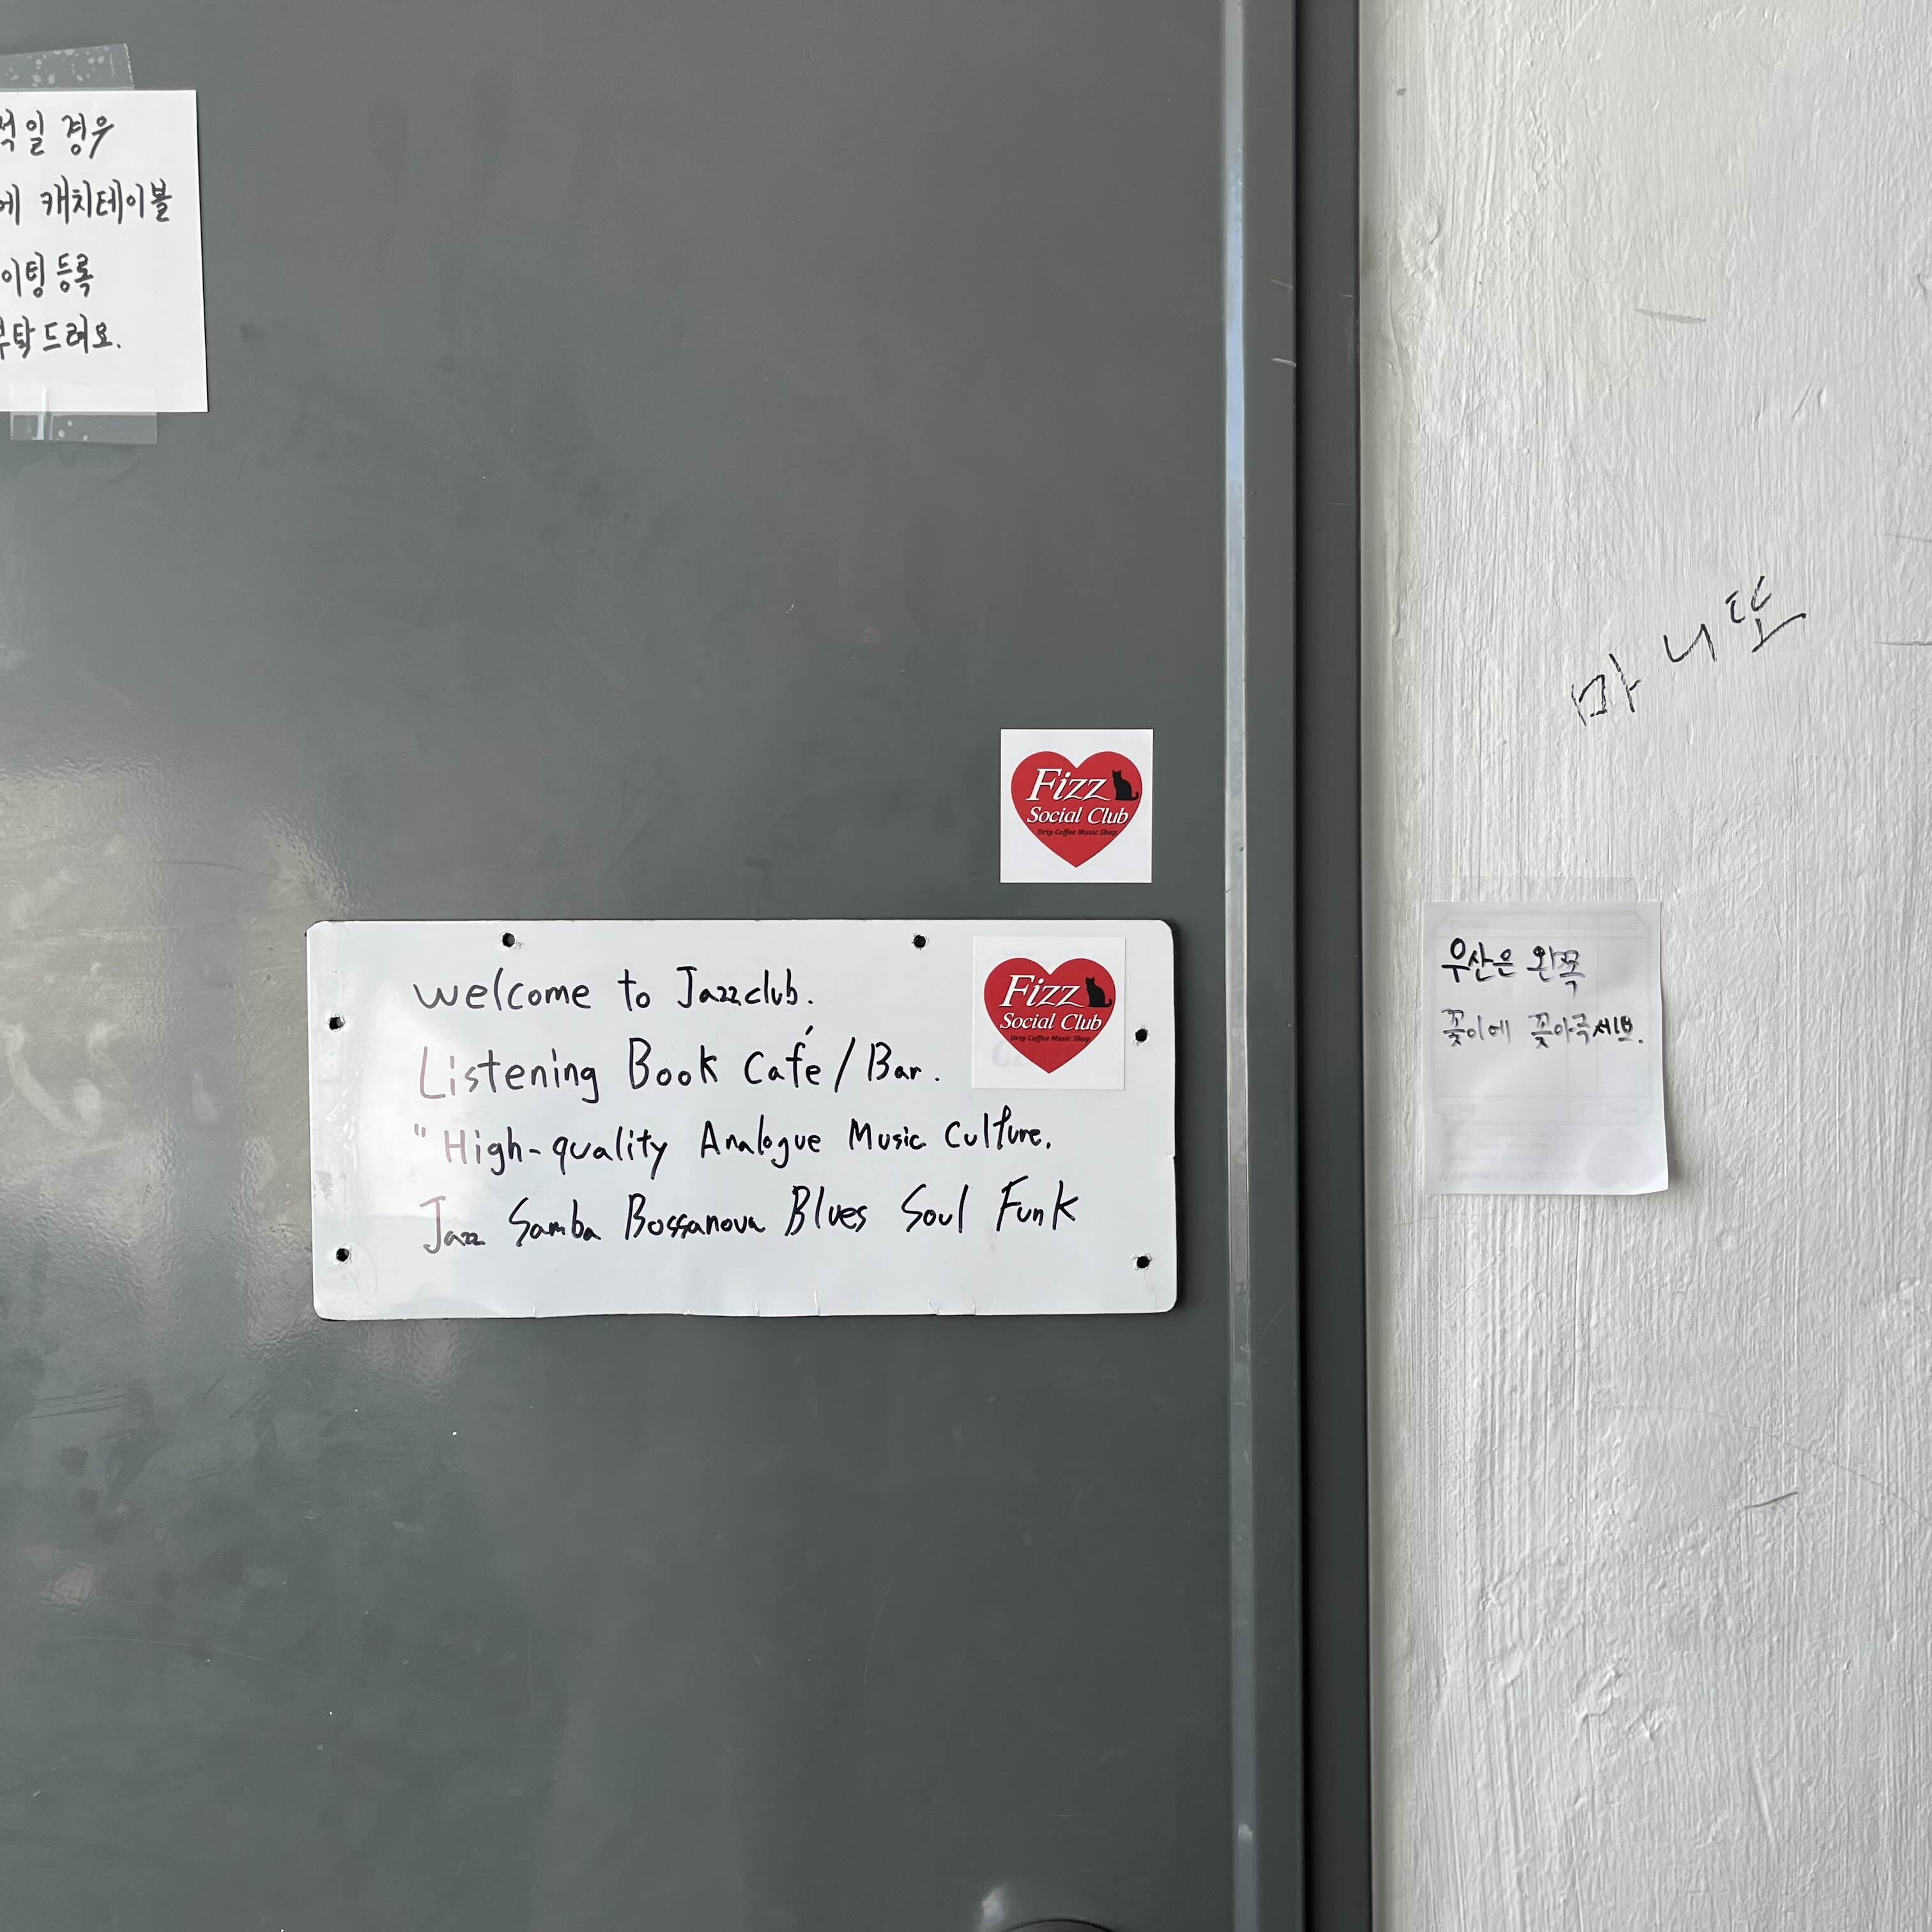 석일 경우
에 캐치테이블
이팅 등록
부탁드려요.
마니또
Fizz
Social Club
Drip Coffee Music Shop
welcome to Jazzclub.
Listening Book Café / Bar.
"High-quality Analogue Music Culture.
Jazz Samba Bossanova Blues Soul Funk
Fizz
Social Club
Drip Coffee Music Shop
우산은 왼쪽
꽂이에 꽂아주세요.